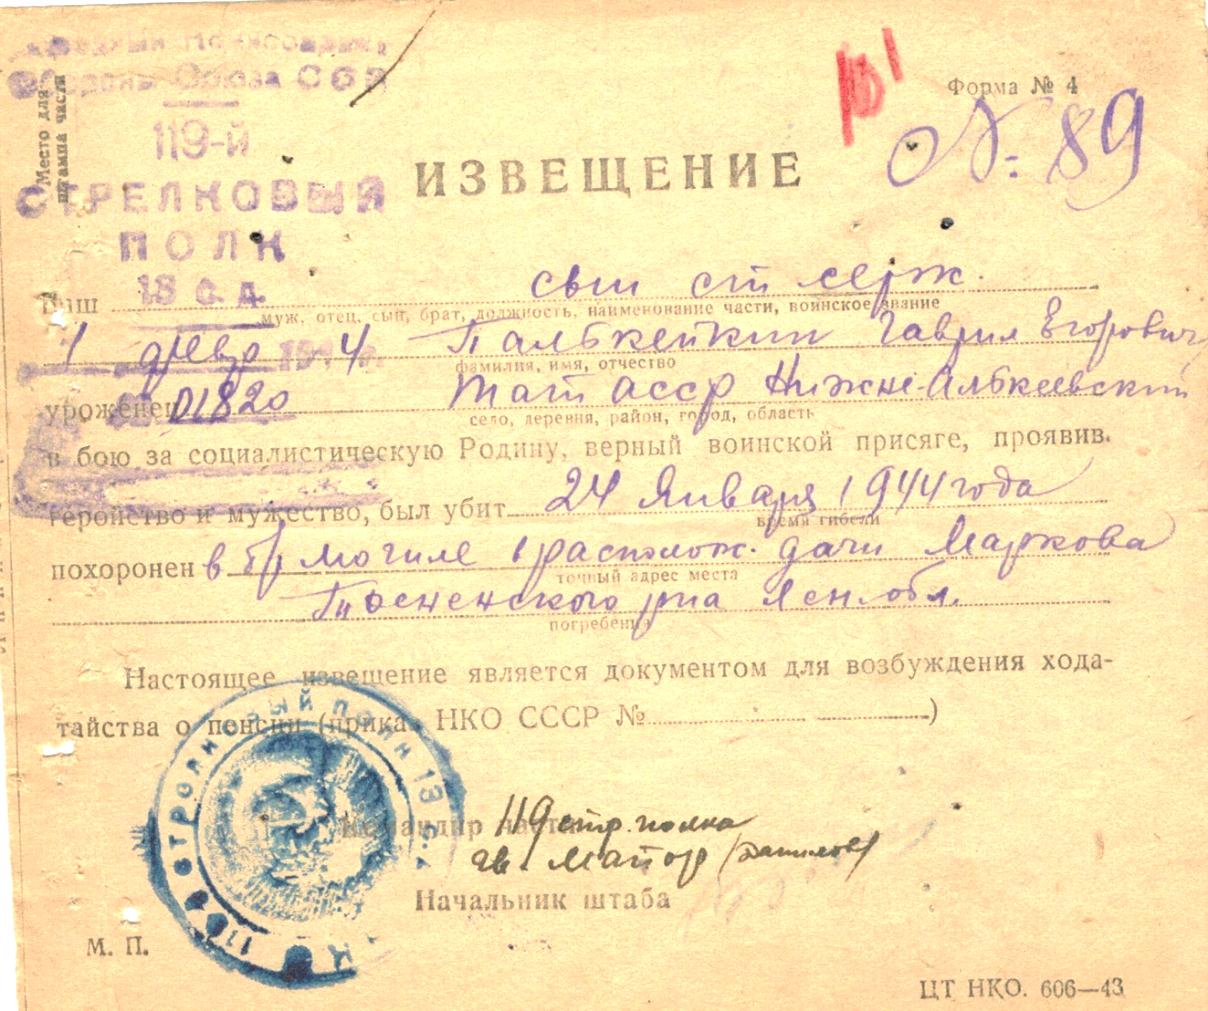 Народный Комиссариат
Обороны Союза ССР
Место для
штампа части
119-й
СТРЕЛКОВЫЙ
ПОЛК
13 с. д.
1 февр 1944 г.
01820
Форма № 4
N: 89
ИЗВЕЩЕНИЕ
Ваш сын ст серж.
муж, отец, сын, брат, должность, наименование части, воинское звание
Палькейкин Гаврил Егорович
фамилия, имя, отчество
уроженец Тат АССР Нижне-Алькеевский
село, деревня, район, город, область
в бою за социалистическую Родину, верный воинской присяге, проявив.
геройство и мужество, был убит 24 Января 1944 года
время гибели
похоронен в бр могиле располож. дачи Маркова
точный адрес места
Тосненского р-на Лен. обл.
погребения
Настоящее извещение является документом для возбуждения хода-
тайства о пенсии (приказ НКО СССР № )
Командир части 119 стр. полка
гв. Майор (Данилов)
Начальник штаба
СТРЕЛКОВЫЙ ПОЛК 13 С. Д.
М. П.
ЦТ НКО. 606—43